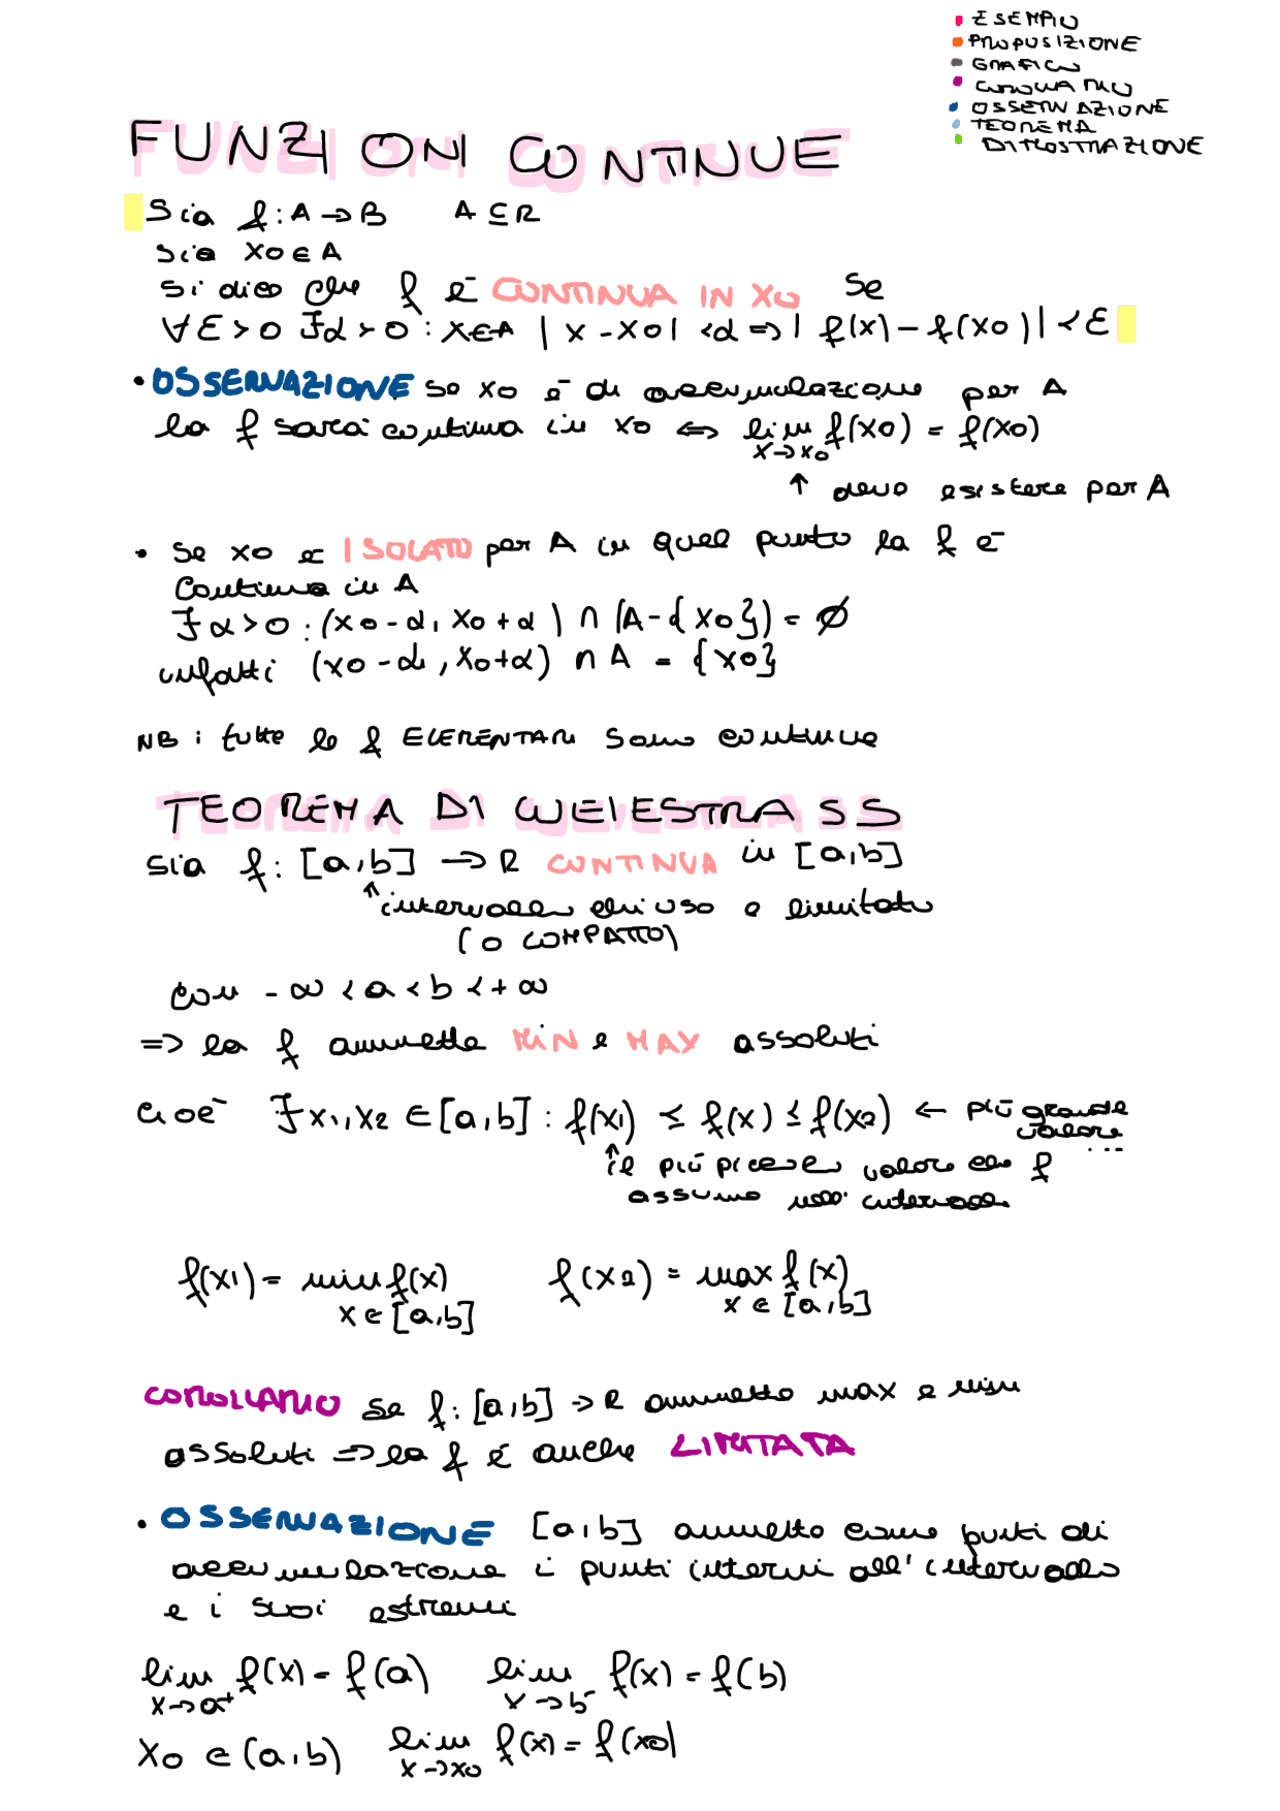 ESEMPIO
PROPOSIZIONE
GRAFICO
COROLLARIO
OSSERVAZIONE
TEOREMA
DIMOSTRAZIONE
FUNZIONI CONTINUE
Sia f: A → B A ⊆ R
Sia x0 ∈ A
Si dice che f è CONTINUA IN X0 se
∀ ε > 0 ∃ α > 0 : x ∈ A | x - x0 | < α => | f(x) - f(x0) | < ε
• OSSERVAZIONE Se x0 è di accumulazione per A
la f sarà continua in x0 <=> lim f(x0) = f(x0)
x→x0
↑ deve esistere per A
• Se x0 è ISOLATO per A in quel punto la f è
continua in A
∃ α > 0 : (x0 - α, x0 + α) ∩ (A - {x0}) = ∅
infatti (x0 - α, x0 + α) ∩ A = {x0}
NB : tutte le f ELEMENTARI sono continue
TEOREMA DI WEIESTRASS
Sia f: [a,b] → R CONTINUA in [a,b]
↑ intervallo chiuso e limitato
(o COMPATTO)
con - ∞ < a < b < + ∞
=> la f ammette MIN e MAX assoluti
cioè ∃ x1, x2 ∈ [a,b] : f(x1) ≤ f(x) ≤ f(x2) ← più grande
valore ...
↑ il più piccolo valore che f
assume nell' intervallo
f(x1) = min f(x) f(x2) = max f(x)
x ∈ [a,b] x ∈ [a,b]
COROLLARIO se f: [a,b] → R ammette max e min
assoluti => la f è anche LIMITATA
• OSSERVAZIONE [a,b] ammette come punti di
accumulazione i punti interni all' intervallo
e i suoi estremi
lim f(x) = f(a) lim f(x) = f(b)
x→a+ x→b-
x0 ∈ (a,b) lim f(x) = f(x0)
x→x0